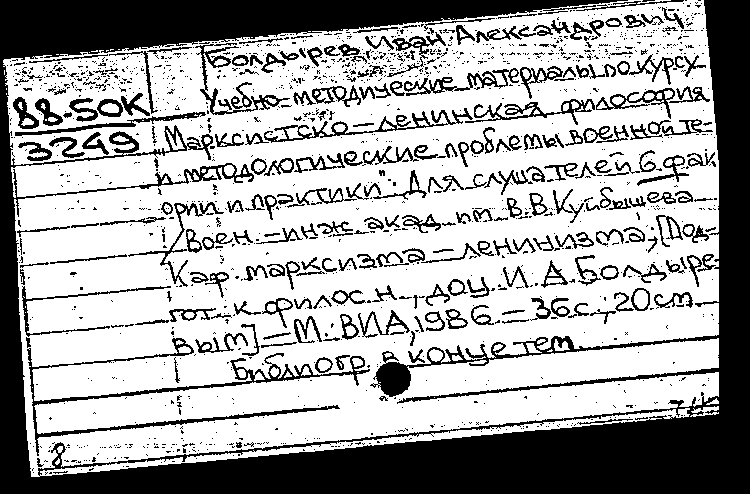 Болдырев, Иван Александрович
88-50К
3249
Учебно-методические материалы по курсу
"Марксистско-ленинская философия
и методологические проблемы военной те-
ории и практики": Для слушателей 6 фак
/Воен.-инж. акад. им. В.В.Куйбышева
Каф. марксизма-ленинизма; [Под-
гот. к. филос. н., доц. И.А.Болдыре-
вым] - М.: ВИА, 1986 - 36 с.; 20 см.
Библиогр в конце тем.
8